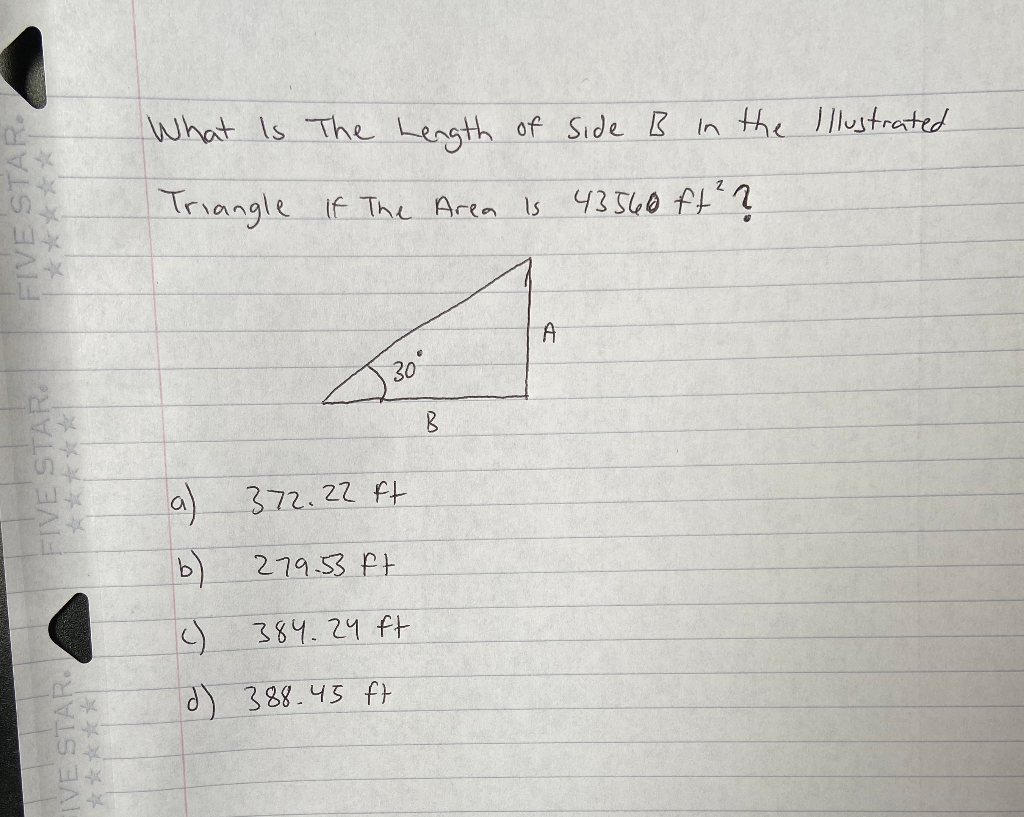 What Is The Length of Side B in the Illustrated
Triangle if The Area Is 43560 ft²?
A
30°
B
a) 372.22 ft
b) 279.53 ft
c) 384.24 ft
d) 388.45 ft
FIVE STAR.
★★★★★
FIVE STAR.
★★★★★
IVE STAR.
★★★★★